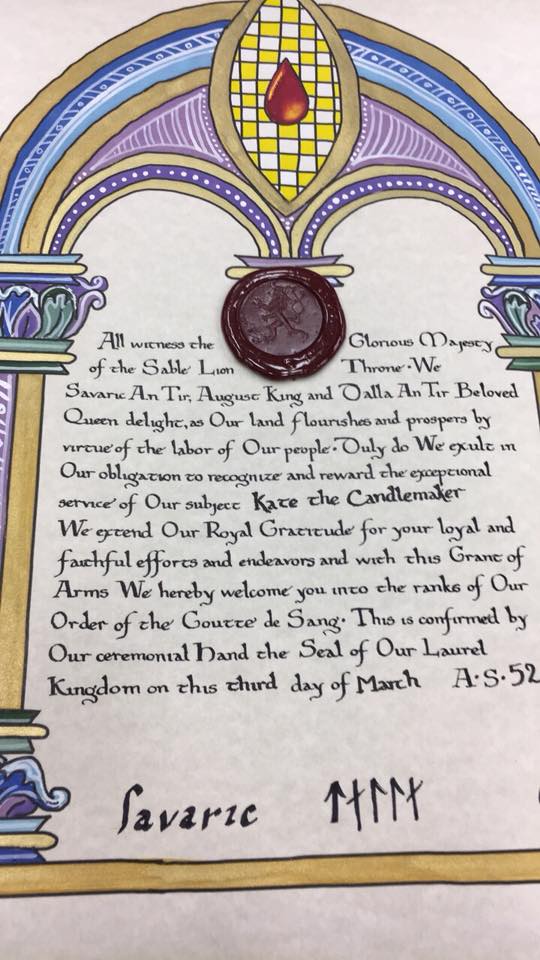 All witness the Glorious Majesty
of the Sable Lion Throne· We
Savaric An Tir, August King and Dalla An Tir Beloved
Queen delight, as Our land flourishes and prospers by
virtue of the labor of Our people· Duly do We exult in
Our obligation to recognize and reward the exceptional
service of Our subject Kate the Candlemaker
We extend Our Royal Gratitude for your loyal and
faithful efforts and endeavors and with this Grant of
Arms We hereby welcome you into the ranks of Our
Order of the Goutte de Sang· This is confirmed by
Our ceremonial hand the Seal of Our Laurel
Kingdom on this third day of March A·S·52
Savaric ᛐᛅᛚᛚᛅ